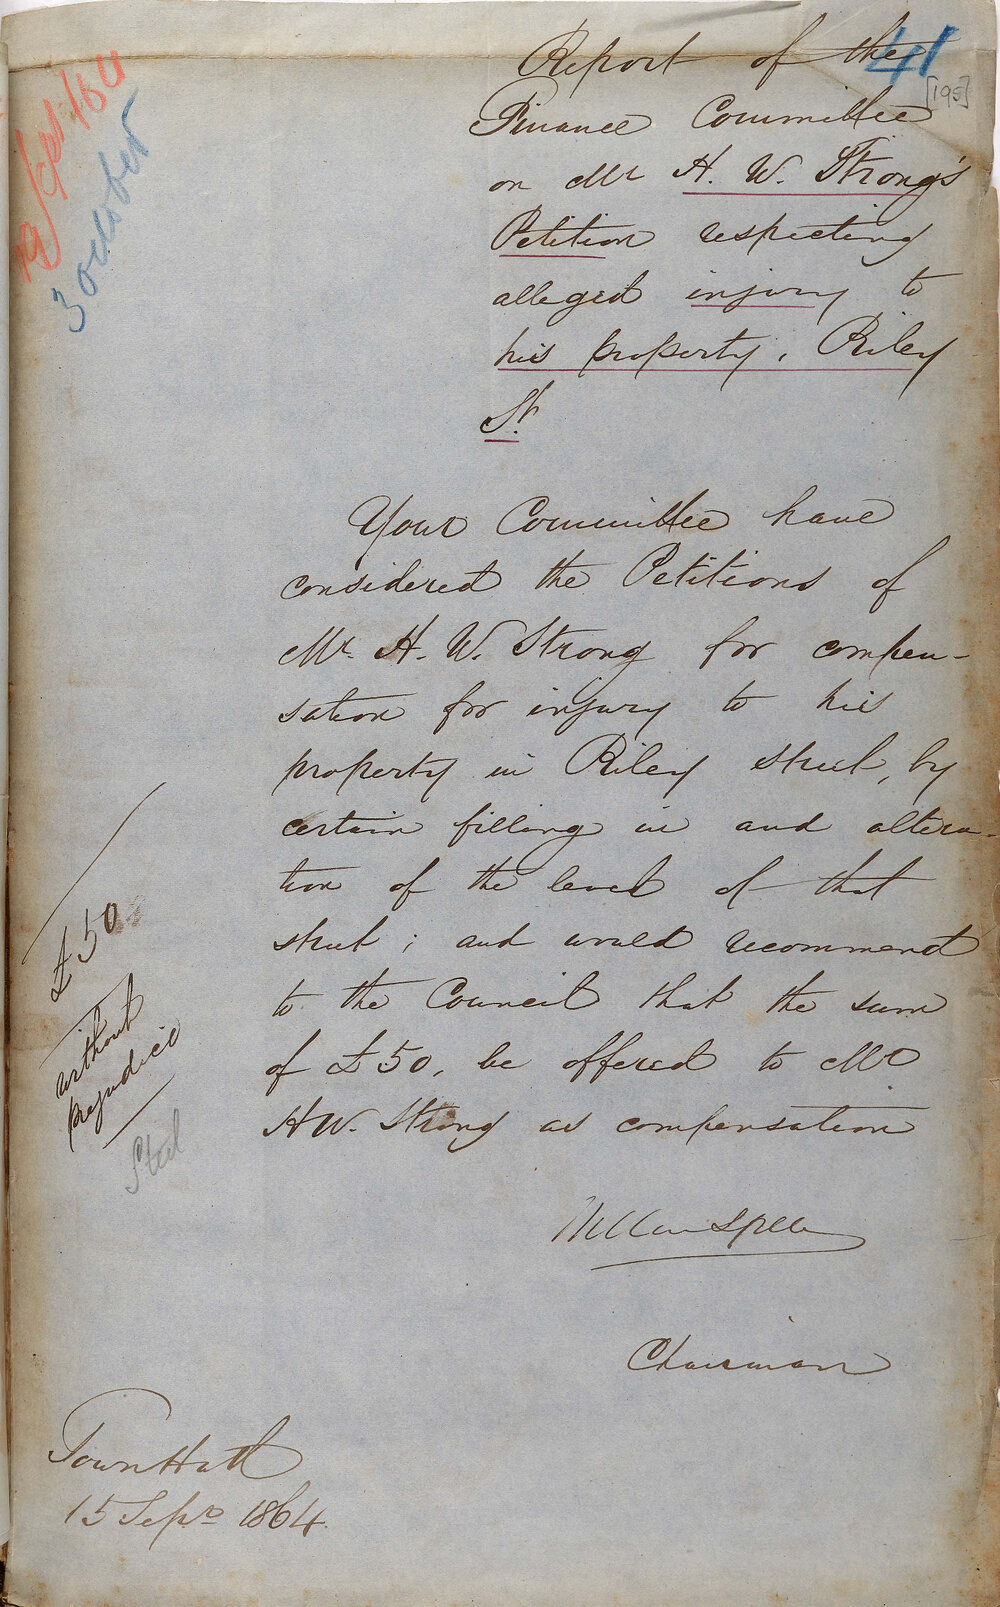 41
[195]
Report of the
Finance Committee
on Mr H. W. Strong's
Petition respecting
alleged injury to
his property, Riley
St.
3 October
Your Committee have
considered the Petitions of
Mr. H. W. Strong for compen-
sation for injury to his
property in Riley street, by
certain filling in and altera-
tion of the level of that
street; and would recommend
to the Council that the sum
of £50, be offered to Mr
H W. Strong as compensation
£50
without
prejudice
Chairman
Town Hall
15 Sepr 1864.